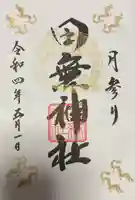 月参り
田無神社
令和四年五月一日